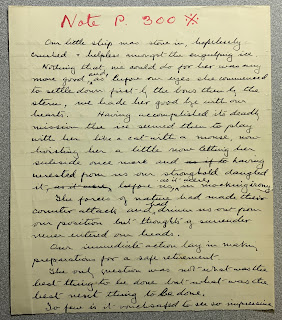 Note P. 300 ※
Our little ship was stove in, hopelessly
crushed & helpless amongst the engulfing ice.
Nothing that we could do for her was any
more good, and, as before our eyes she commenced
to settle down first by the bows then by the
stern, we bade her good bye with our
hearts. Having accomplished its deadly
mission the ice seemed then to play
with her like a cat with a mouse, now
hoisting her a little now letting her
subside once more and as if to having
wrested from us our stronghold dangled
it, as it were, before us, as it were, in mocking irony.
The forces of nature had made their
counter attack and had driven us out from
our position but thoughts of surrender
never entered our heads.
Our immediate action lay in making
preparations for a safe retirement
The only question was not what was the
best thing to be done but what was the
best next thing to be done.
To few is it vouchsafed to see so impressive